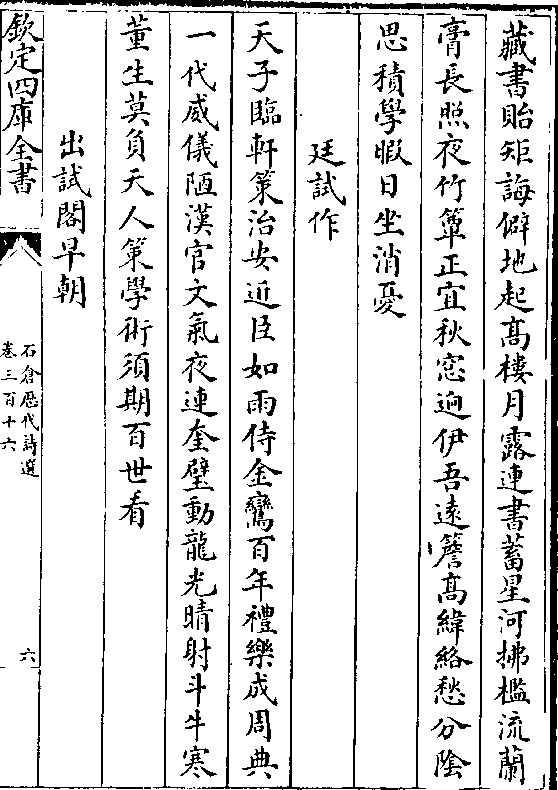 藏書貽矩誨僻地起髙樓月露連書蓄星河拂檻流蘭
膏長照夜竹簟正宜秋窓逈伊吾逺簷髙緯絡愁分陰
思積學暇日坐消憂
廷試作
天子臨軒策治安近臣如雨侍金鸞百年禮樂成周典
一代威儀陋漢官文氣夜連奎璧動龍光晴射斗牛寒
董生莫負天人策學術須期百世看
出試閣早朝
欽定四庫全書
石倉歴代詩選
卷三百十六
六